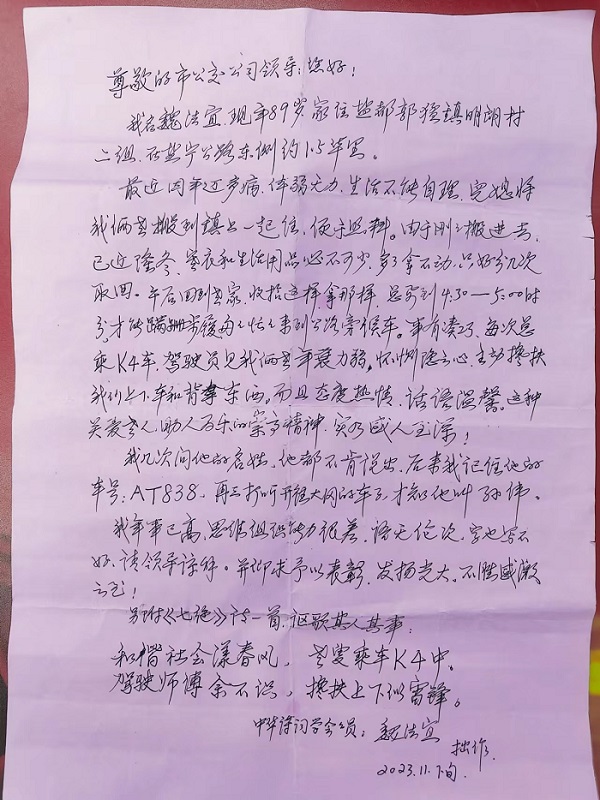 尊敬的市公交公司领导：您好！
我名魏法宜，现年89岁，家住盐都郭猛镇明朗村
二组，在盐宁公路东侧约1.5华里。
最近因年迈多病，体弱无力，生活不能自理，儿媳将
我俩老搬到镇上一起住，便于照料。由于刚刚搬进去，
已近隆冬，寒衣和生活用品必不可少，多了拿不动，只好分几次
取回。午后回到老家，收拾这样，拿那样，总要到4:30—5:00时
分，才能蹒跚步履匆匆忙忙来到公路旁候车。事有凑巧，每次总
乘K4车，驾驶员见我俩老年衰力弱，怀恻隐之心，主动搀扶
我们上下车和背拿东西，而且态度热情，话语温馨。这种
关爱老人，助人为乐的崇高精神，实乃感人至深！
我几次问他的名姓，他都不肯说出，后来我记住他的
车号：AT838，再三打听开往大冈的车子，才知他叫孙伟。
我年事已高，思维组织能力很差，语无伦次，字也写不
好，请领导谅解。并仰求予以表彰，发扬光大，不胜感激
之至！
另附《七绝》诗一首，讴歌其人其事：
和谐社会漾春风，老叟乘车K4中。
驾驶师傅余不识，搀扶上下似雷锋。
中华诗词学会会员：魏法宜
拙作
2023.11.下旬